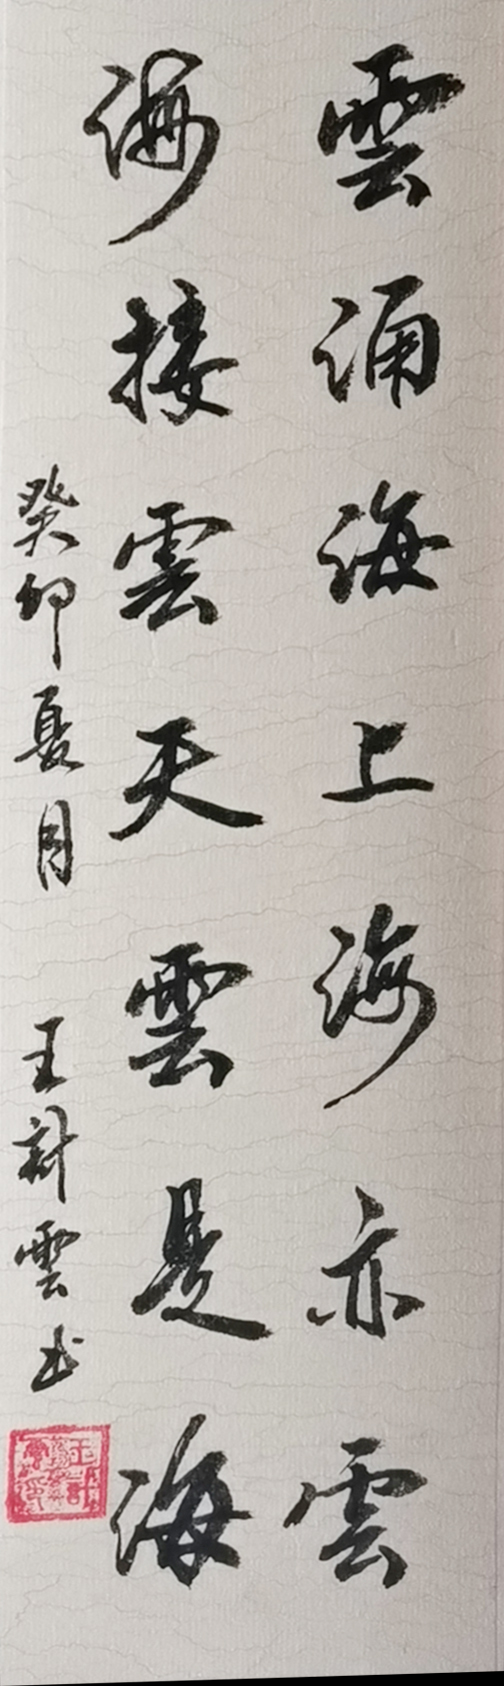 雲涌海上海亦雲
海接雲天雲是海
癸卯夏月 王計雲书